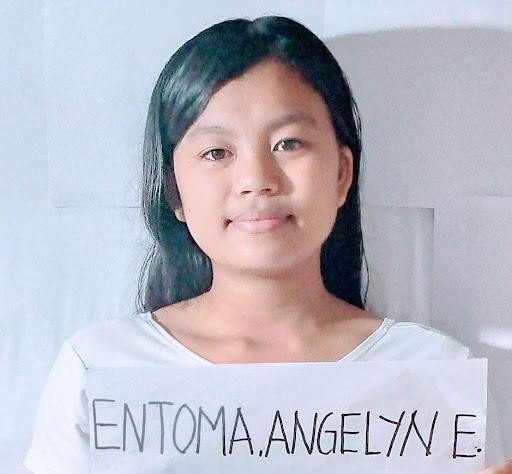 ENTOMA, ANGELYN E.